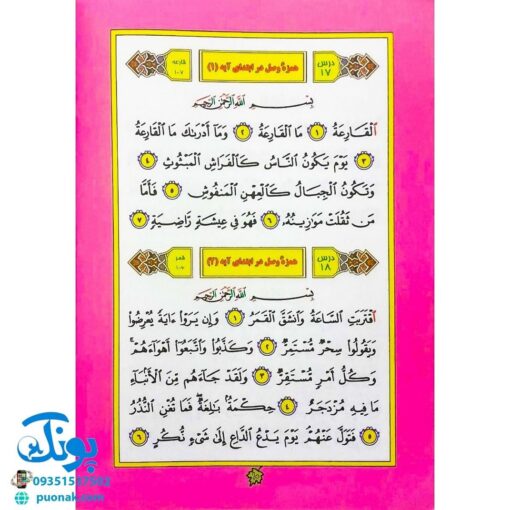 درس ۱۷
همزهٔ وصل در ابتدای آیه (۱)
قارعه ۷-۱
بِسْمِ اللَّهِ الرَّحْمَٰنِ الرَّحِيمِ
اَلْقَارِعَةُ ۱ مَا الْقَارِعَةُ ۲ وَمَا أَدْرَىٰكَ مَا الْقَارِعَةُ
۳ يَوْمَ يَكُونُ النَّاسُ كَالْفَرَاشِ الْمَبْثُوثِ ۴
وَتَكُونُ الْجِبَالُ كَالْعِهْنِ الْمَنْفُوشِ ۵ فَأَمَّا
مَن ثَقُلَتْ مَوَٰزِينُهُۥ ۶ فَهُوَ فِي عِيشَةٍ رَاضِيَةٍ ۷
درس ۱۸
همزهٔ وصل در ابتدای آیه (۲)
قمر
بِسْمِ اللَّهِ الرَّحْمَٰنِ الرَّحِيمِ
اِقْتَرَبَتِ السَّاعَةُ وَانْشَقَّ الْقَمَرُ ۱ وَإِن يَرَوْا ءَايَةً يُعْرِضُوا
وَيَقُولُوا سِحْرٌ مُسْتَمِرٌّ ۲ وَكَذَّبُوا وَاتَّبَعُوا أَهْوَاءَهُمْ ۚ
وَكُلُّ أَمْرٍ مُسْتَقِرٌّ ۳ وَلَقَدْ جَاءَهُم مِنَ الْأَنْبَاءِ
مَا فِيهِ مُزْدَجَرٌ ۴ حِكْمَةٌ بَالِغَةٌ ۖ فَمَا تُغْنِ النُّذُرُ
۵ فَتَوَلَّ عَنْهُمْ ۘ يَوْمَ يَدْعُ الدَّاعِ إِلَىٰ شَيْءٍ نُكُرٍ ۶
پونک
puonak.com